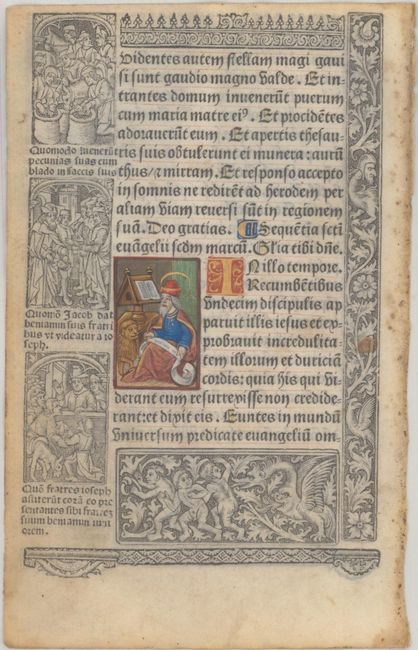 Videntes autem stellam magi gaui
si sunt gaudio magno valde. Et in-
trantes domum invenerūt puerum
cum maria matre eiꝰ. Et procidētes
adorauerūt eum. Et apertis thesau-
ris suis obtulerunt ei munera: aurū
thus/⁊ mirram. Et responso accepto
in somnis ne redirēt ad herodem per
aliam viam reversi sūt in regionem
suā. Deo gratias. Sequētia scti
euāgelii scdm marcū. Glia tibi dñe.
IN illo tempore.
Recumbētibus
vndecim discipulis ap
paruit illis iesus et ex
probrauit incredulita-
tem illorum et duriciā
cordis: quia his qui vi-
derant eum resurrexisse non credide-
rant: et dixit eis. Euntes in mundū
vniuersum predicate euangeliū om-
Quomodo inuenerūt
pecunias suas cum
blado in saccis suis
Quomō Jacob dat
beniamin suis fratri
bus vt videatur a io
seph.
Quō fratres ioseph
corā eo pre
sentantes sibi
suum beniamin
orem.